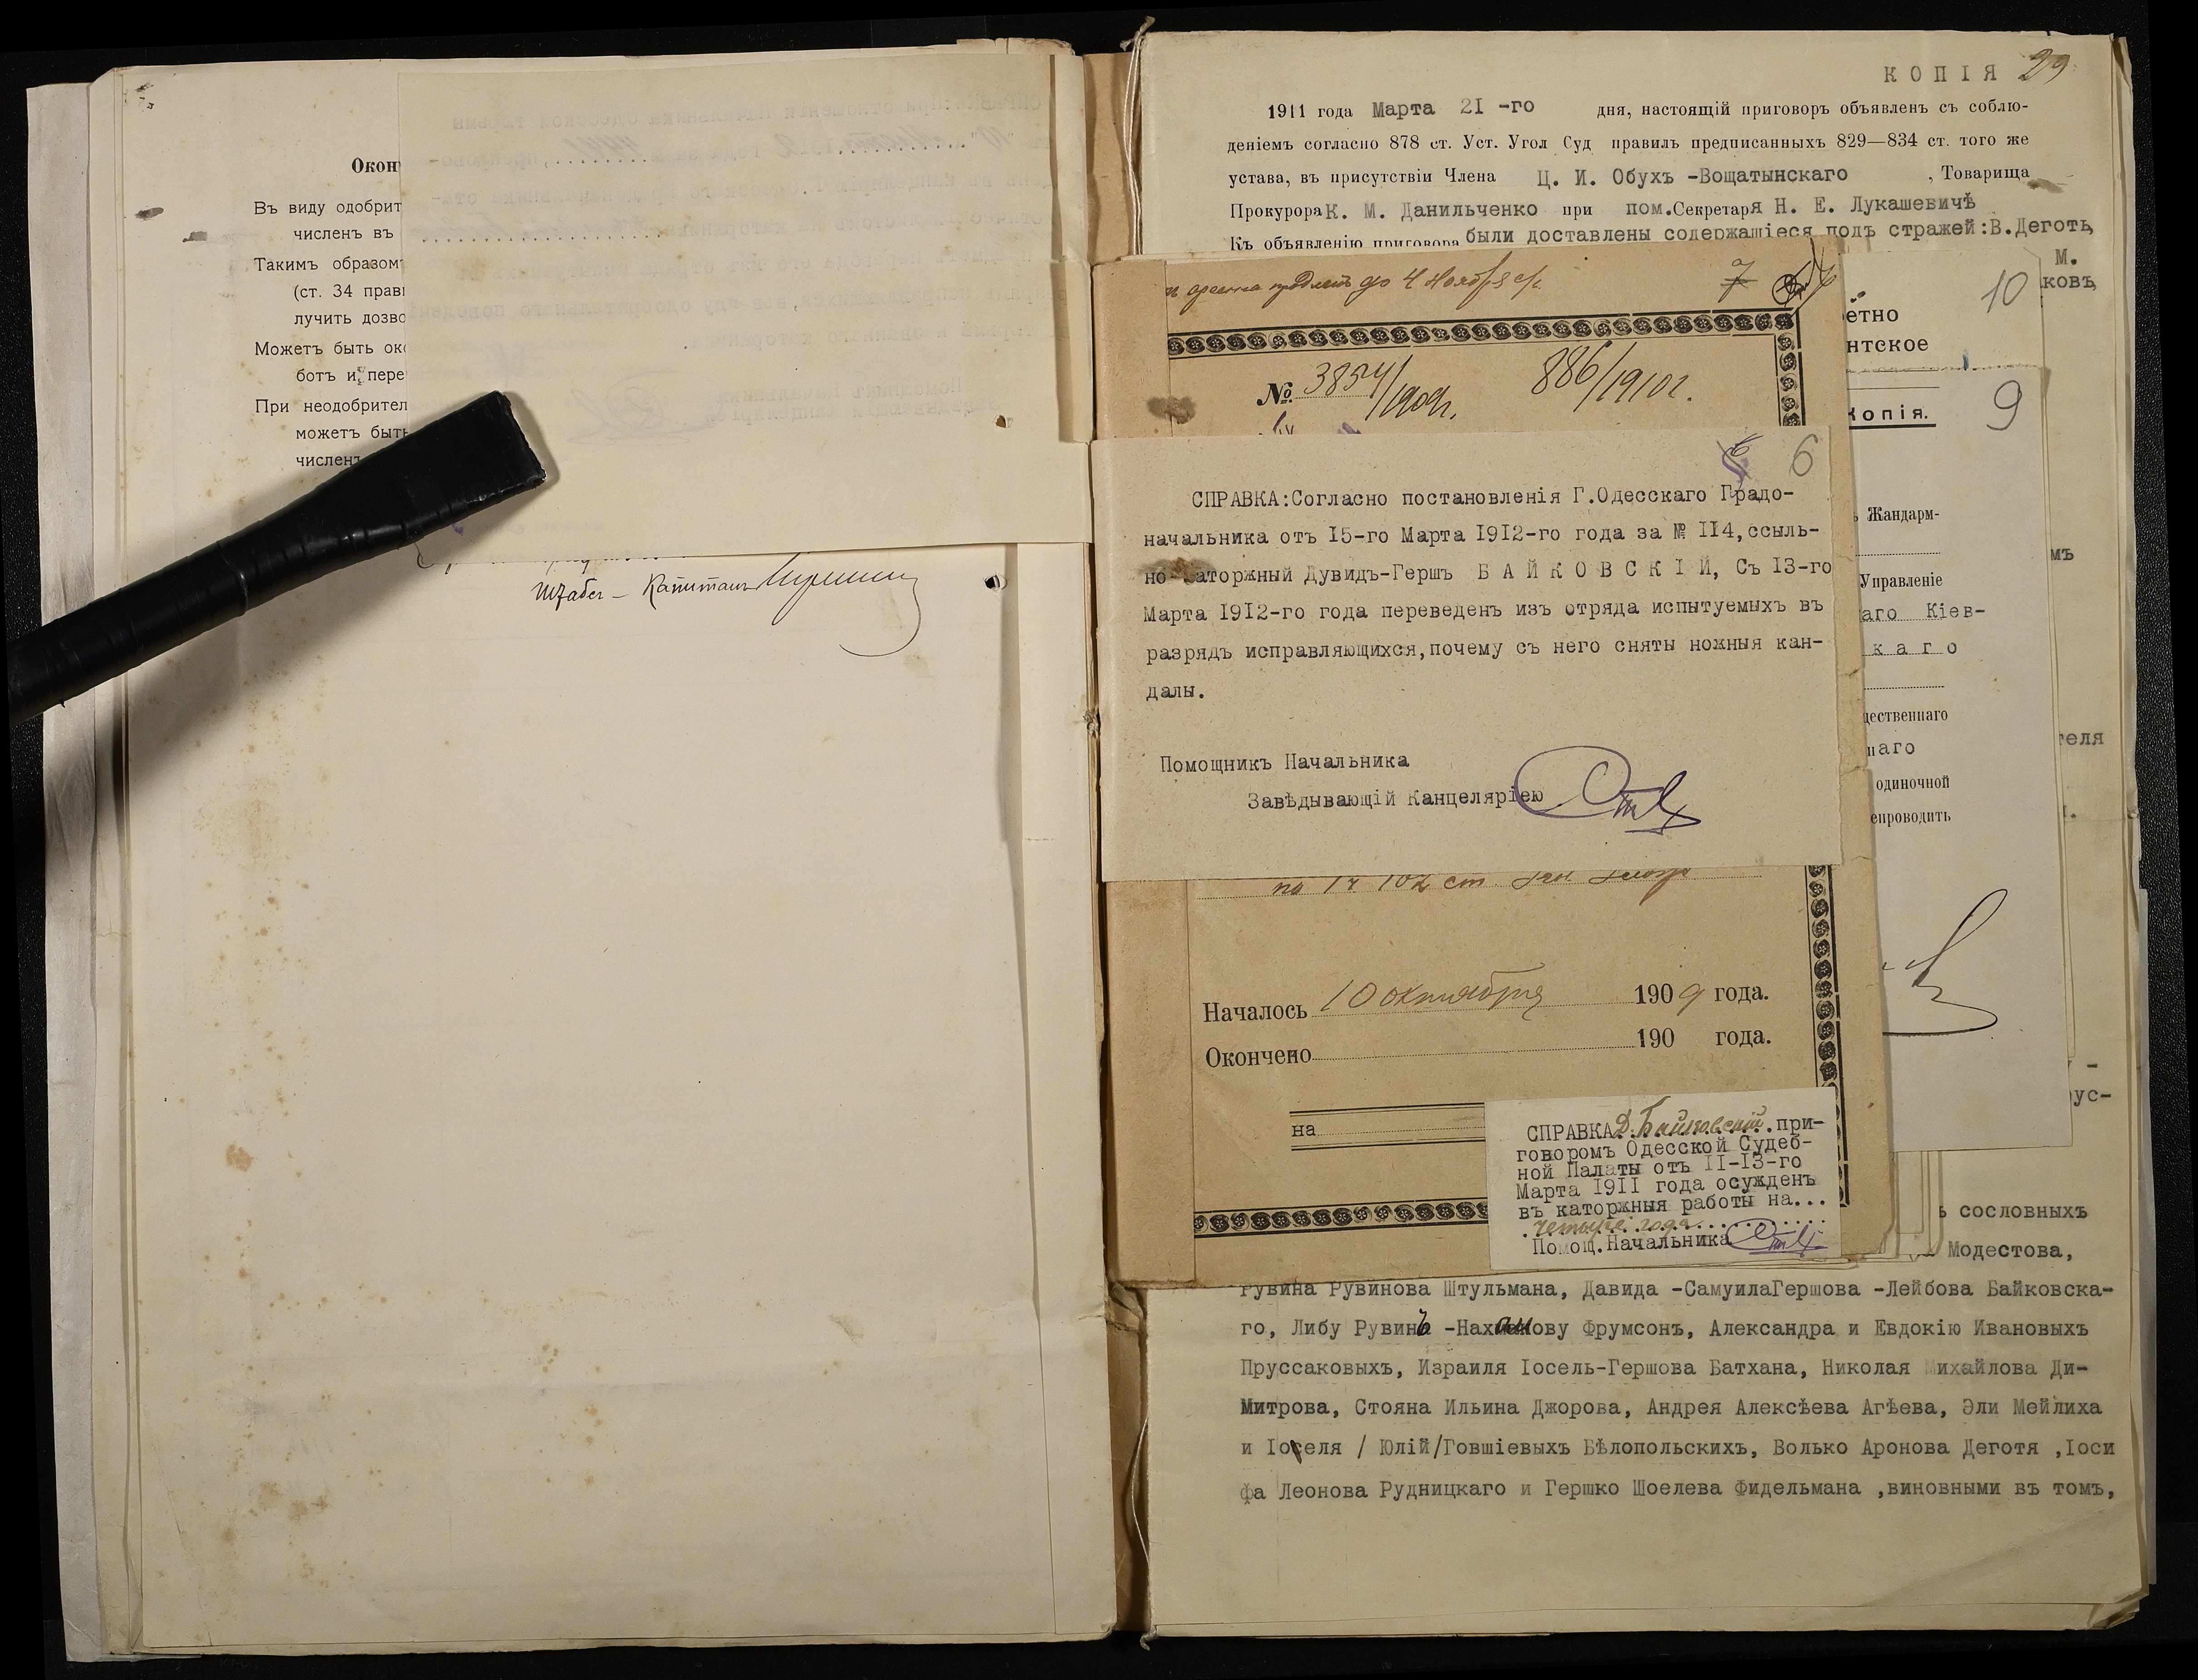 Окон
Въ виду одобрит
численъ въ
Такимъ образом
(ст. 34 прав
лучить дозво
Можетъ быть ок
ботъ и пере
При неодобрител
можетъ быть
численъ
Штабсъ-Капитанъ
КОПІЯ 29
1911 года Марта 21 -го дня, настоящій приговоръ объявленъ съ соблю-
деніемъ согласно 878 ст. Уст. Угол Суд правилъ предписанныхъ 829—834 ст. того же
устава, въ присутствіи Члена Ц. И. Обухъ -Вощатынскаго , Товарища
Прокурора К. М. Данильченко при пом.Секретаря Н. Е. Лукашевичѣ
Къ объявленію приговора были доставлены содержащіеся подъ стражей:В.Деготь,
М.
ковъ,
до 4 Ноября с/г. 7
№ 3854/1909г. 886/1910г.
10
етно
нтское
Копія. 9
Жандарм-
Управленіе
аго Кіев-
каго
щественнаго
наго
одиночной
епроводить
мъ
теля
ус-
6
СПРАВКА:Согласно постановленія Г.Одесскаго Градо-
начальника отъ 15-го Марта 1912-го года за № 114,ссыль-
но-каторжный Дувидъ-Гершъ БАЙКОВСКІЙ, Съ 13-го
Марта 1912-го года переведенъ изъ отряда испытуемыхъ въ
разрядъ исправляющихся,почему съ него сняты ножныя кан-
далы.
Помощникъ Начальника
Завѣдывающій Канцеляріею
по 1 ч 102 ст. Угол. Улож
Началось 10 октября 1909 года.
Окончено 190 года.
на
СПРАВКА Д. Байковскій при-
говоромъ Одесской Судеб-
ной Палаты отъ 11-13-го
Марта 1911 года осужденъ
въ каторжныя работы на...
четыре года
Помощ.Начальника
сословныхъ
Модестова,
Рувина Рувинова Штульмана, Давида -СамуилаГершова -Лейбова Байковска-
го, Либу Рувинъ -Нахманову Фрумсонъ, Александра и Евдокію Ивановыхъ
Пруссаковыхъ, Израиля Іосель-Гершова Батхана, Николая Михайлова Ди-
Митрова, Стояна Ильина Джорова, Андрея Алексѣева Агѣева, Эли Мейлиха
и Іоселя / Юлій/Говшіевыхъ Бѣлопольскихъ, Волько Аронова Деготя ,Іоси
фа Леонова Рудницкаго и Гершко Шоелева Фидельмана ,виновными въ томъ,